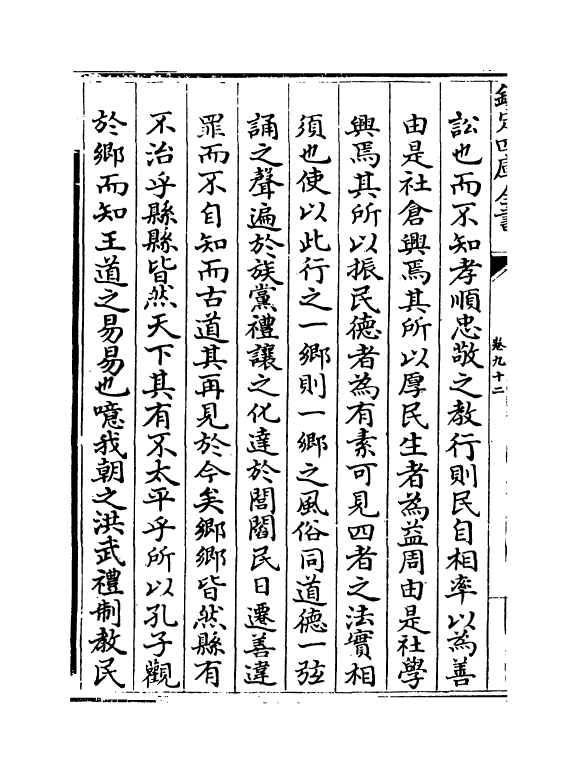 欽定四庫全書
卷九十二
訟也而不知孝順忠敬之教行則民自相率以為善
由是社倉興焉其所以厚民生者為益周由是社學
興焉其所以振民德者為有素可見四者之法實相
須也使以此行之一鄉則一鄉之風俗同道德一弦
誦之聲遍於族黨禮讓之化達於閭閻民日遷善違
罪而不自知而古道其再見於今矣鄉鄉皆然縣有
不治乎縣縣皆然天下其有不太平乎所以孔子觀
於鄉而知王道之易易也噫我朝之洪武禮制教民